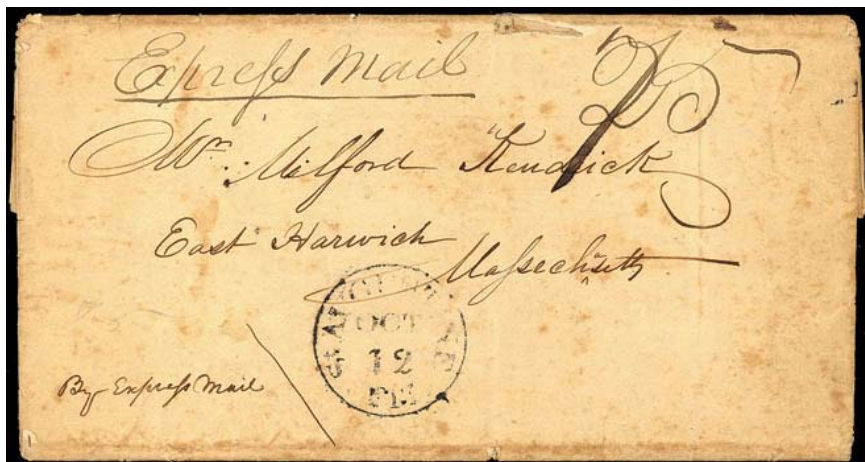 Express Mail
75
Mr. Milford Kendrick
East Harwich
Massechusetts
St AUGUSTINE
OCT
12
By Express Mail